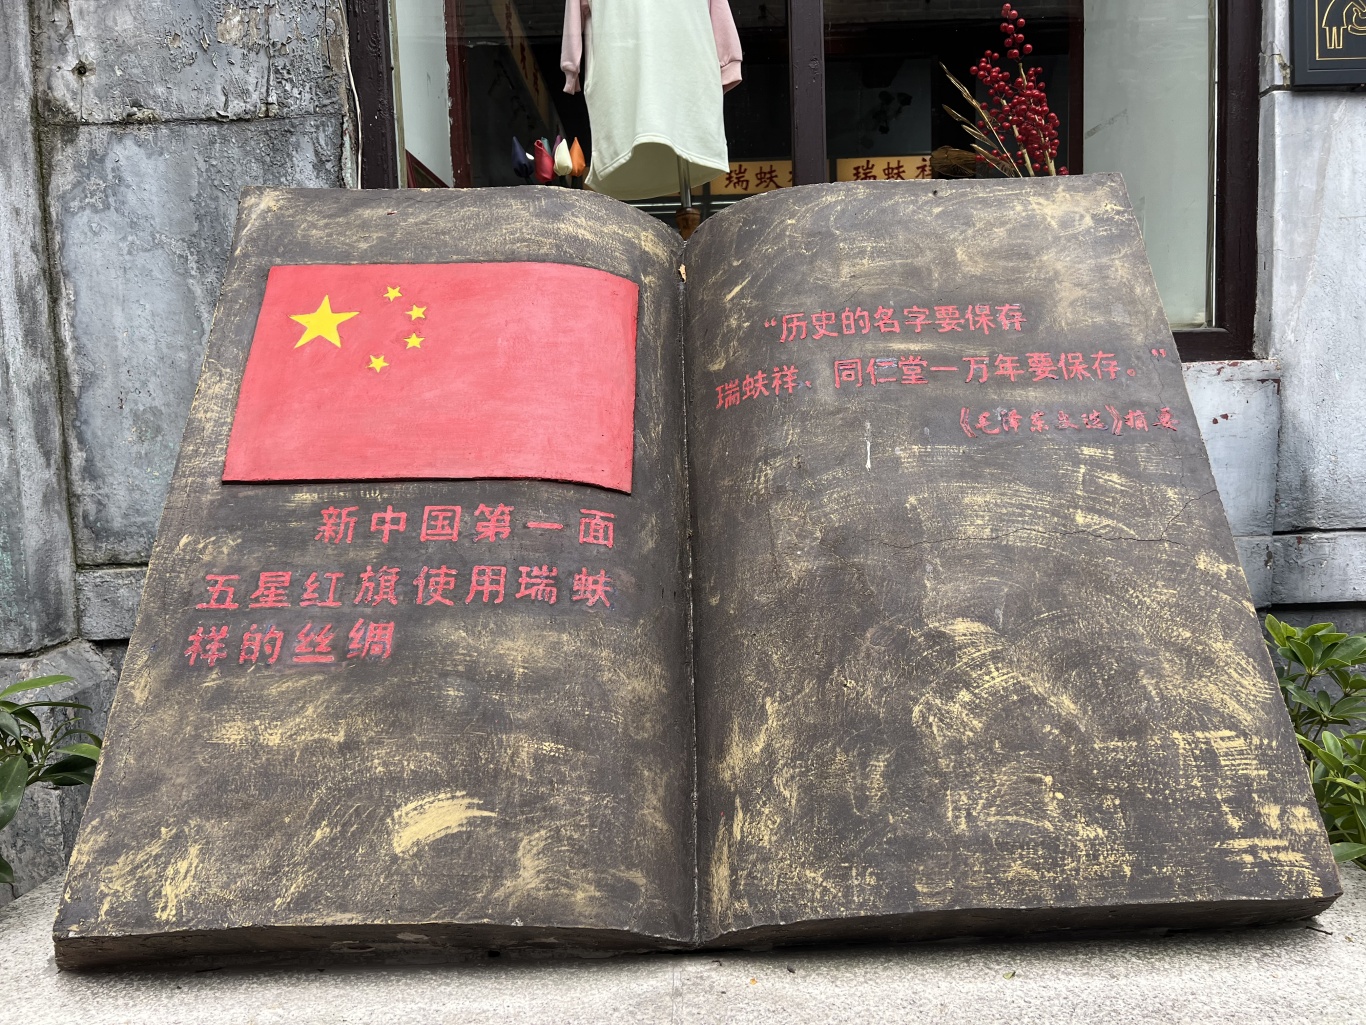 瑞蚨
瑞蚨祥
新中国第一面
五星红旗使用瑞蚨
祥的丝绸
“历史的名字要保存
瑞蚨祥、同仁堂一万年要保存。”
《毛泽东文选》摘要